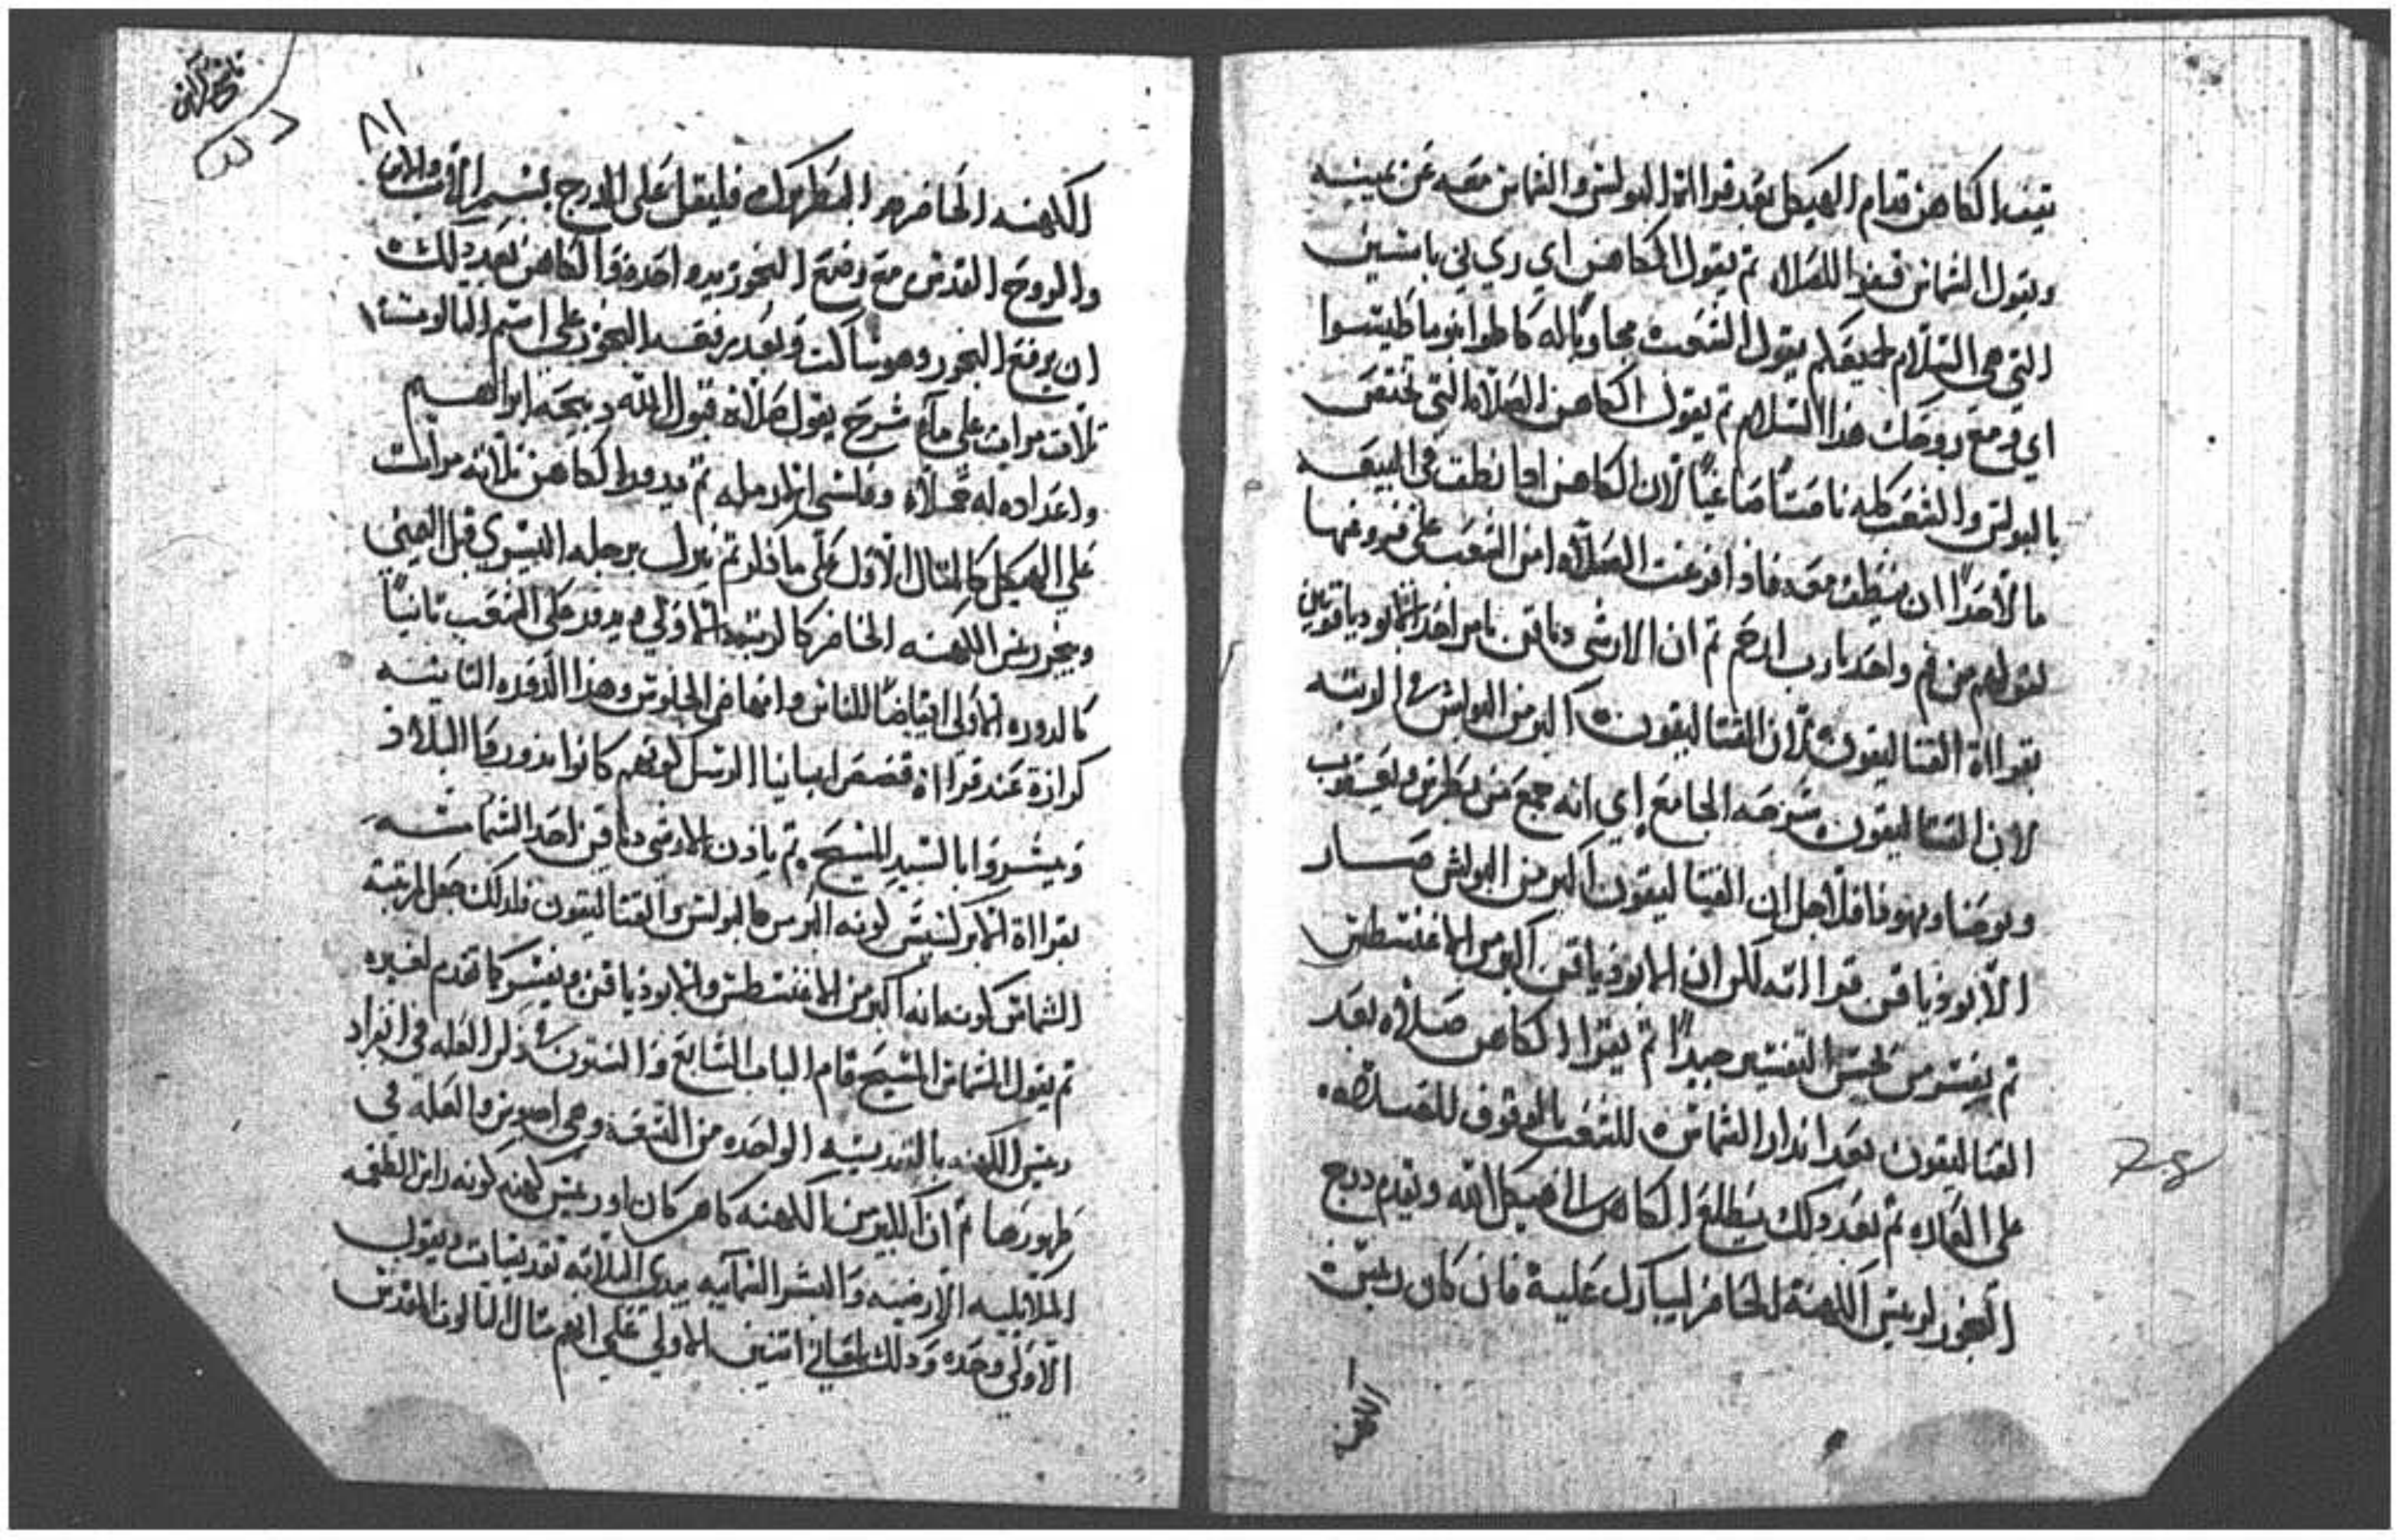 يقف الكاهن قدام الهيكل بعد قرااة البولس والشماس معه عن يمينه
ويقول الشماس قفوا للصلاه ثم يقول الكاهن اي ري ني باسين
التي هي السلام لجميعكم يقول الشعب مجاوبا له كاطو ابنوما طيسوا
اي ومع روحك هذا السلام ثم يقول الكاهن الصلاه التي تختص
بالبولس والشعب كله نامتا صاغيا لان الكاهن اذا نطق في البيعه
ما لاحدا ان ينطق معه فاذا فرغت الصلاه امن الشعب على فروغها
لقولهم من فم واحد يارب ارحم ثم ان الارشي دياقن يامر احد الابودياقونين
بقرااة القتاليقون لان القتاليقون اكبر من البولس في الرتبه
لان القتاليقون شرحه الجامع اي انه جمع من بطرس ويعقوب
ويوحنا ويهوذا فلاجل ان القتاليقون اكبر من البولس صار
الابودياقن قرااته لكن ان الابودياقن اكبر من الاغنسطس
ثم يفسر من يحسن التفسير جيدا ثم يقرا الكاهن صلاه بعد
القتاليقون بعد اندار الشماس للشعب بالوقوف للصلاه
على العاده ثم بعد دلك يطلع الكاهن الى هيكل الله ويقدم درج
البخور لريس الكهنة الحاضر ليبارك عليه فان كان ريس
الكهنه
الكهنه الحاضر هو البطريرك فليقل على الدرج بسم الاب والابن
والروح القدس مع رفع البخور بيده احد فوا الكاهن بعد دلك
ان يرفع البخور وهو ساكت وبعد رفعه البخور على اسم التالوت
تلات مرات على ما شرح يقول صلاة قبول الله دبيحة ابراهيم
واعداده له محملا وفلسي الارمله ثم يدور الكاهن تلاته مرات
على الهيكل كالمتال الاول على ما دكر ثم ينزل برجله اليسري قبل اليمني
ويبخر ريس الكهنه الحاضر كالرتبه الاولي ويدور على الشعب تانيا
كالدوره الاولى ايقاضا للناس وانهاضا من الجلوس وهذا الدوره التانيه
كرازة عند قرااة قصص ابهاتنا الرسل كونهم كانوا يدوروا البلاد
ويبشروا بالسيد المسيح ثم يادن الارشي دياقن احد الشمامسه
بقرااة الابركسيس كونه اكبر من البولس والقتاليقون فلدلك جعل لمرتبة
الشماس كونه انه اكبر من الاغنسطس والابودياقن ويفسر كما تقدم لغيره
ثم يقول الشماس المسيح قام الباب السابع والستون في دكر العله في انفراد
ريس الكهنه بالتقديسه الواحده من التسعه وهي اصوين والعله في
ظهورها ثم ان الكبير من الكهنه كاهن كان او ريس كهنه كونه راس الطغمه
الملايكيه الارضيه والبشر السمآييه يبدي التلاته تقديسات ويقول
الاولي وحده ودلك لمعاني اتنين الاولي على انهم متال التالوت المقدس